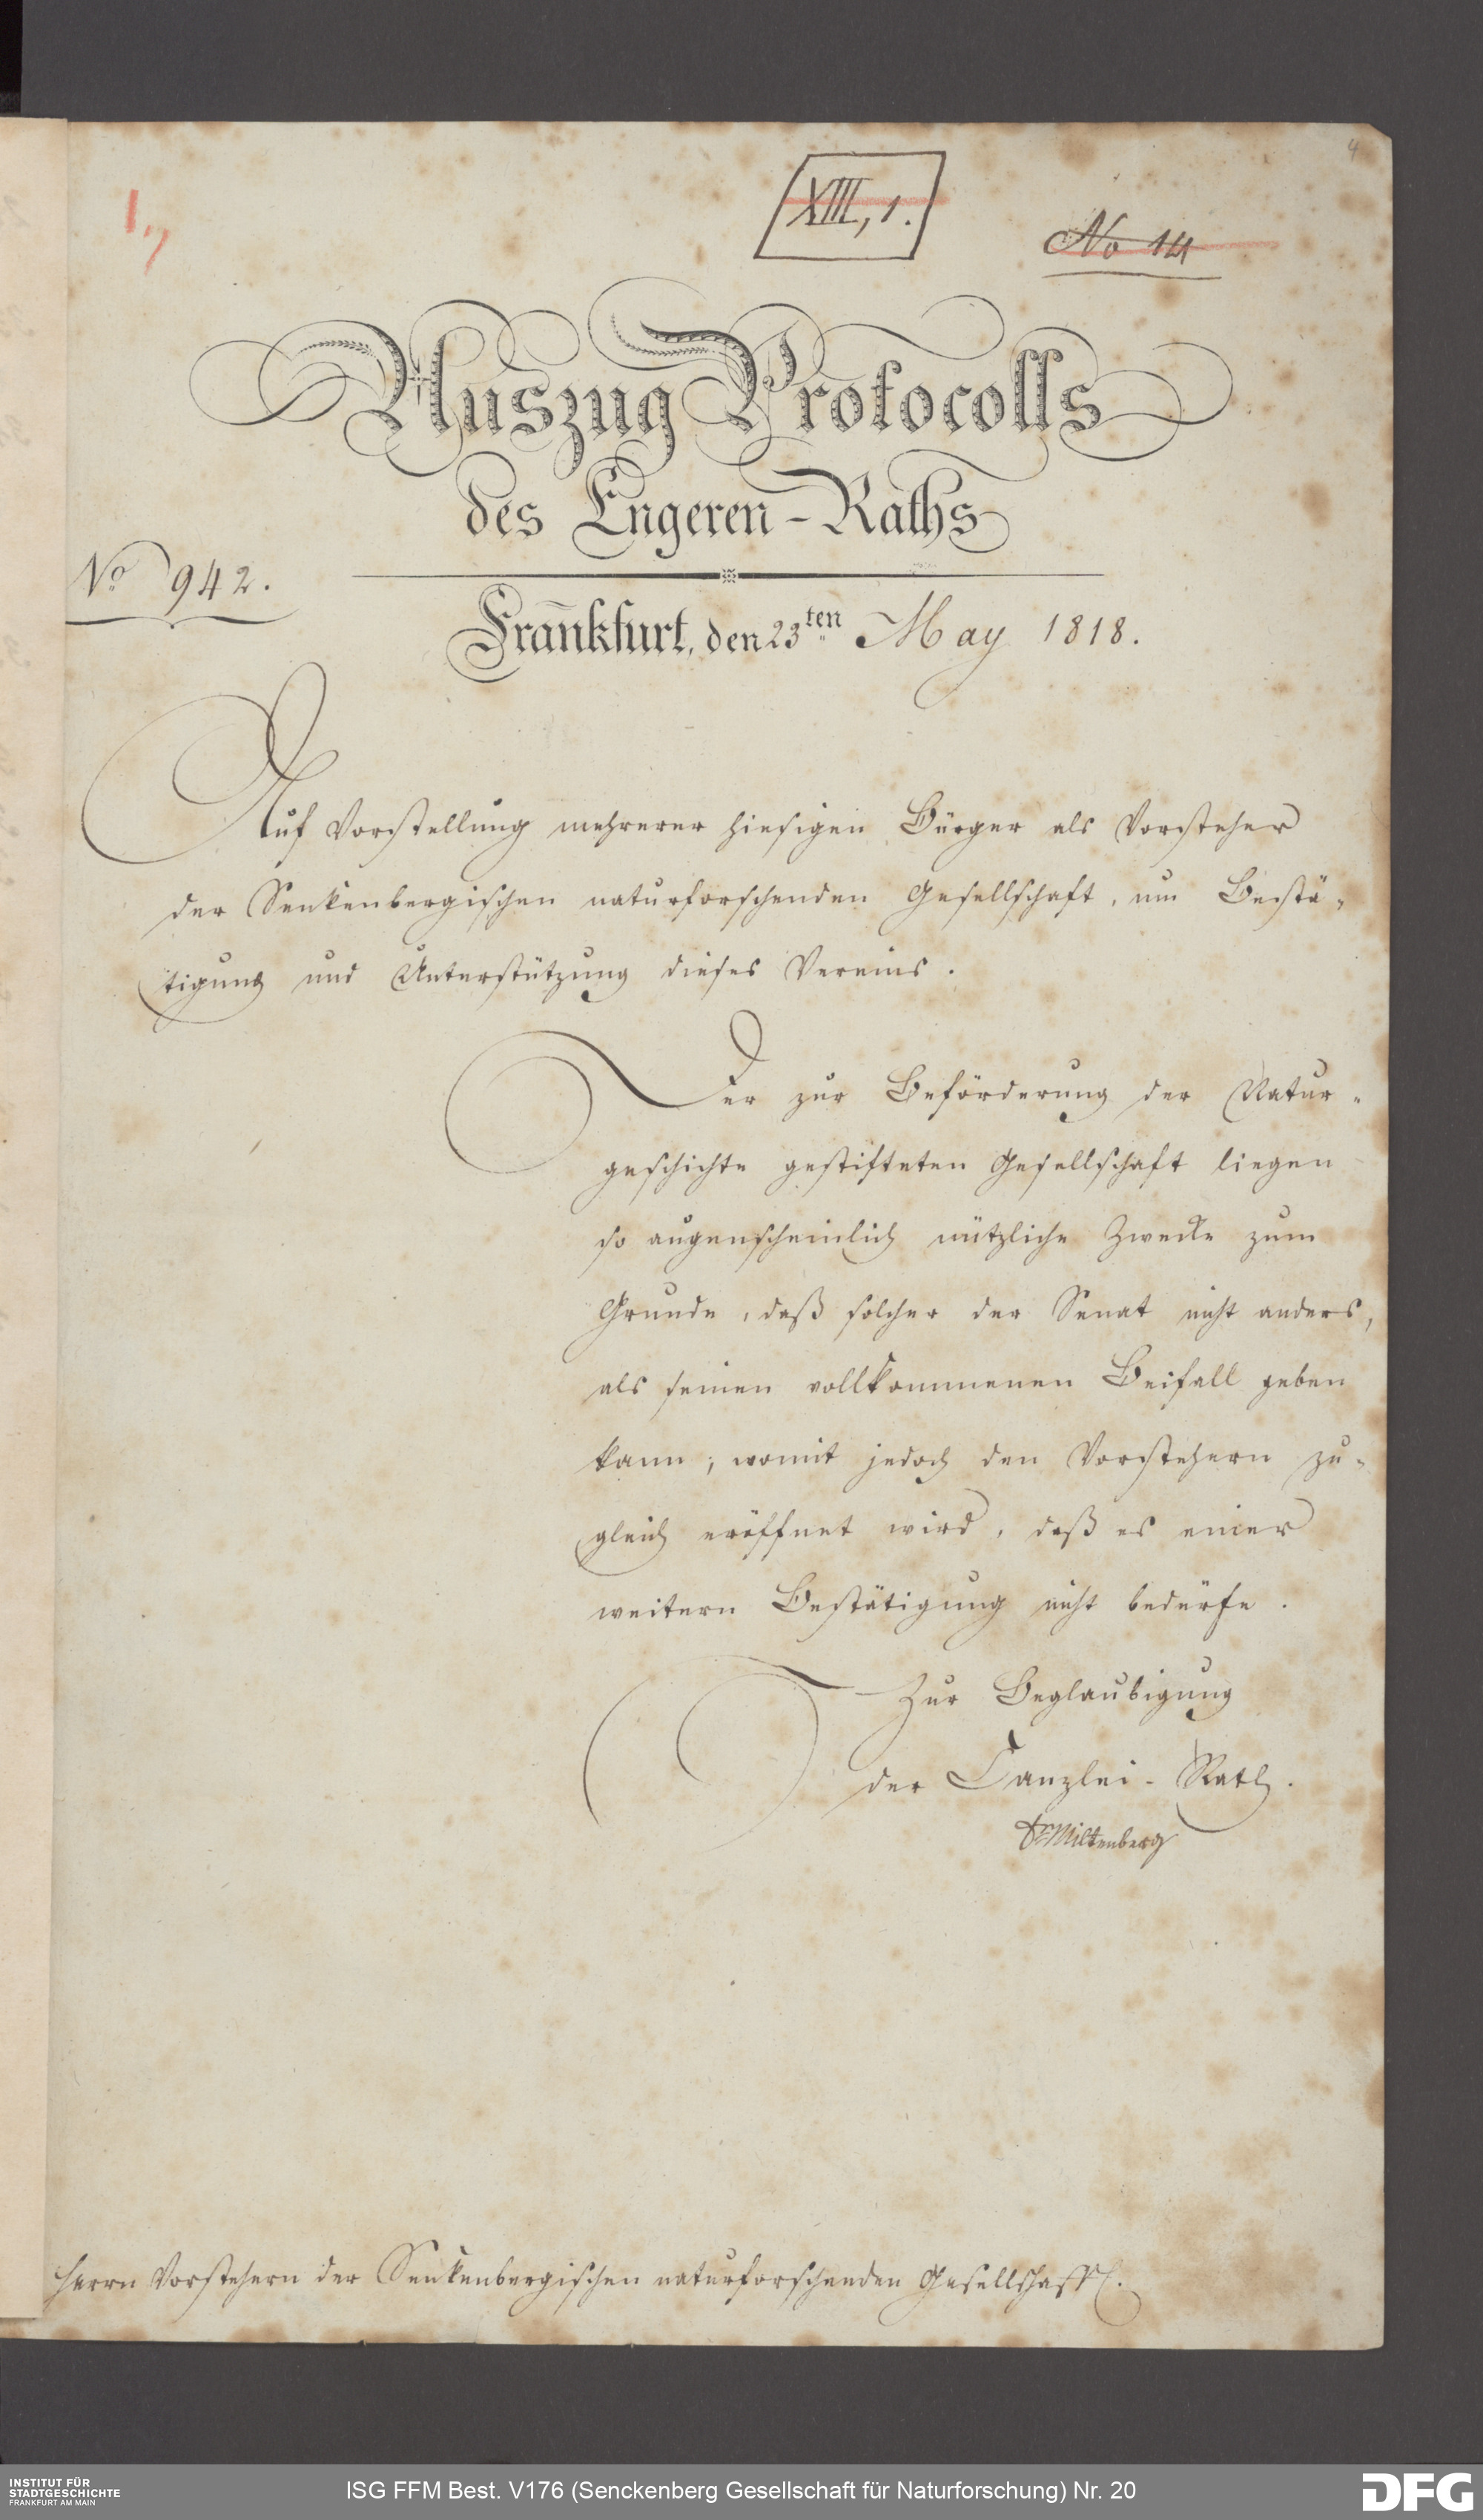 4
1.,
XIII, 1.
No 14
Auszug Protocolls
des Engeren-Raths
No 942.
Franckfurt, den 23ten May 1818.
Auf Vorstellung mehrerer hiesigen Bürger als Vorsteher
der Senkenbergischen naturforschenden Gesellschaft, um Bestä-
tigung und Unterstützung dieses Vereins.
Der zur Beförderung der Natur-
geschichte gestifteten Gesellschaft liegen
so augenscheinlich nützliche Zwecke zum
Grunde, daß solcher der Senat nicht anders,
als seinen vollkommenen Beifall geben
kann; womit jedoch den Vorstehern zu-
gleich eröffnet wird, daß es einer
weitern Bestätigung nicht bedürfe.
Zur Beglaubigung
der Canzlei-Rath.
Dr Miltenberg
Herrn Vorstehern der Senkenbergischen naturforschenden Gesellschaft.
INSTITUT FÜR
STADTGESCHICHTE
FRANKFURT AM MAIN
ISG FFM Best. V176 (Senckenberg Gesellschaft für Naturforschung) Nr. 20
DFG